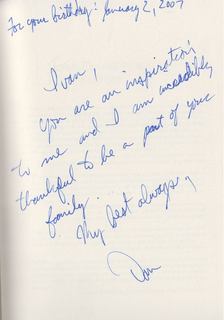 For your birthday! January 2, 2007
Ivan,
You are an inspiration
to me and I am incredibly
thankful to be a part of your
family.
My best always,
Don